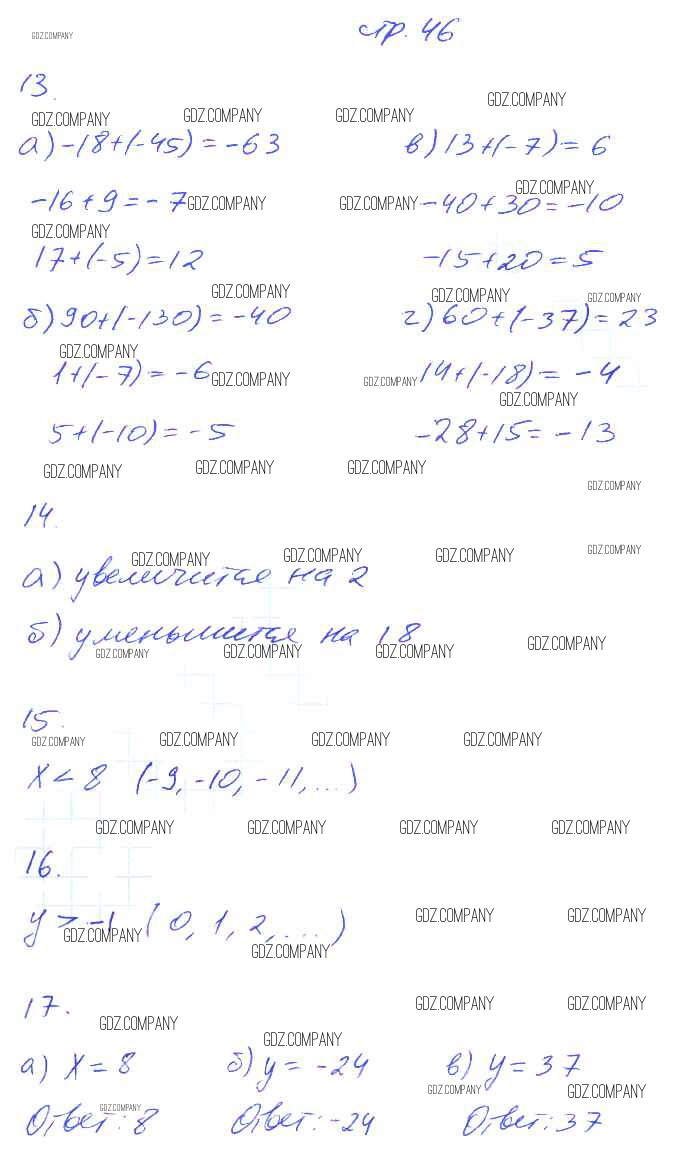 GDZ.COMPANY стр. 46
13.
GDZ.COMPANY GDZ.COMPANY GDZ.COMPANY GDZ.COMPANY
а) -18+(-45) = -63 в) 13+(-7) = 6
-16+9 = -7 GDZ.COMPANY GDZ.COMPANY -40+30 = -10 GDZ.COMPANY
GDZ.COMPANY
17+(-5) = 12 -15+20 = 5
GDZ.COMPANY GDZ.COMPANY GDZ.COMPANY
б) 90+(-130) = -40 г) 60+(-37) = 23
GDZ.COMPANY
1+(-7) = -6 GDZ.COMPANY GDZ.COMPANY 14+(-18) = -4
GDZ.COMPANY
5+(-10) = -5 -28+15 = -13
GDZ.COMPANY GDZ.COMPANY GDZ.COMPANY GDZ.COMPANY
14.
GDZ.COMPANY GDZ.COMPANY GDZ.COMPANY GDZ.COMPANY
а) увеличится на 2
б) уменьшится на 18
GDZ.COMPANY GDZ.COMPANY GDZ.COMPANY GDZ.COMPANY
15.
GDZ.COMPANY GDZ.COMPANY GDZ.COMPANY GDZ.COMPANY
x < 8 (-9, -10, -11, ...)
GDZ.COMPANY GDZ.COMPANY GDZ.COMPANY GDZ.COMPANY
16.
y > -1 (0, 1, 2, ...) GDZ.COMPANY GDZ.COMPANY
GDZ.COMPANY GDZ.COMPANY
17. GDZ.COMPANY GDZ.COMPANY
GDZ.COMPANY GDZ.COMPANY
а) x = 8 б) y = -24 в) y = 37
GDZ.COMPANY GDZ.COMPANY GDZ.COMPANY
Ответ: 8 Ответ: -24 Ответ: 37